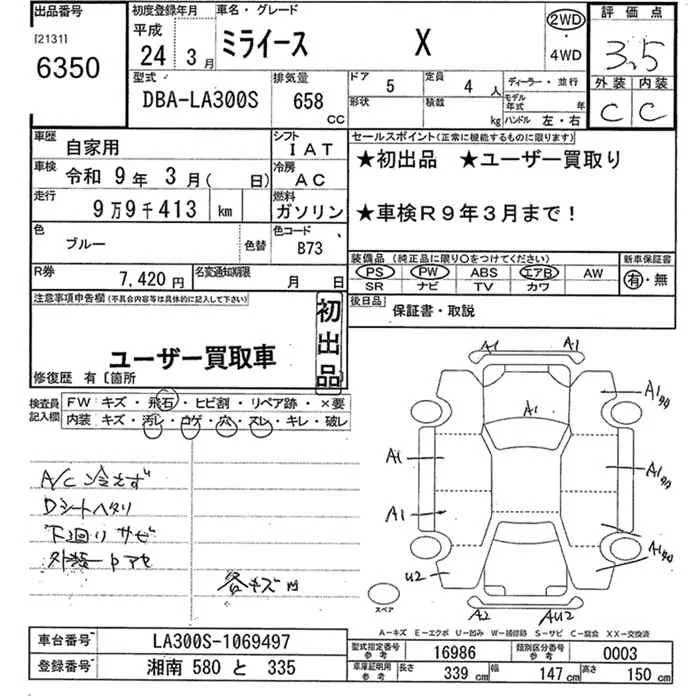 出品番号 初度登録年月 車名・グレード 評価点
[2131] 平成 2WD
6350 24年 3月 ミライース X ・ 3.5
4WD
型式 排気量 ドア 5 定員 4人 ディーラー・並行 外装 内装
DBA-LA300S 658 cc 形状 積載 kg モデル年式 年 C C
ハンドル 左・右
車歴 自家用 シフト IAT セールスポイント(正常に機能するものに限ります)
車検 令和 9年 3月( 日) 冷房 AC ★初出品 ★ユーザー買取り
走行 9万9千413 km 燃料 ガソリン ★車検R9年3月まで!
色 ブルー 色替 色コード B73
装備品(純正品に限り○をつけてください) 新車保証書
PS PW ABS エアB AW 有・無
SR ナビ TV カワ
R券 7,420円 名変通知期限 月 日
後日品 保証書・取説
注意事項申告欄(不具合内容等は具体的に記入して下さい) 初出品
ユーザー買取車
修復歴 有〔箇所
検査員記入欄 FW キズ・飛石・ヒビ割・リペア跡・×要
内装 キズ・汚レ・コゲ・穴・スレ・キレ・破レ
A/C 冷えず
Dシートヘタリ
下廻り サビ
外装一部アセ
各キズ凹
A1 A1
A1
A1
A1
A1
A1
U2
A2 AU2
スペア
A-キズ E-エクボ U-凹み W-補修跡 S-サビ C-腐食 XX-交換済
車台番号 LA300S-1069497 型式指定番号 参考 16986 類別区分番号 参考 0003
登録番号 湘南 580 と 335 車庫証明用 参考 長さ 339 cm 幅 147 cm 高さ 150 cm